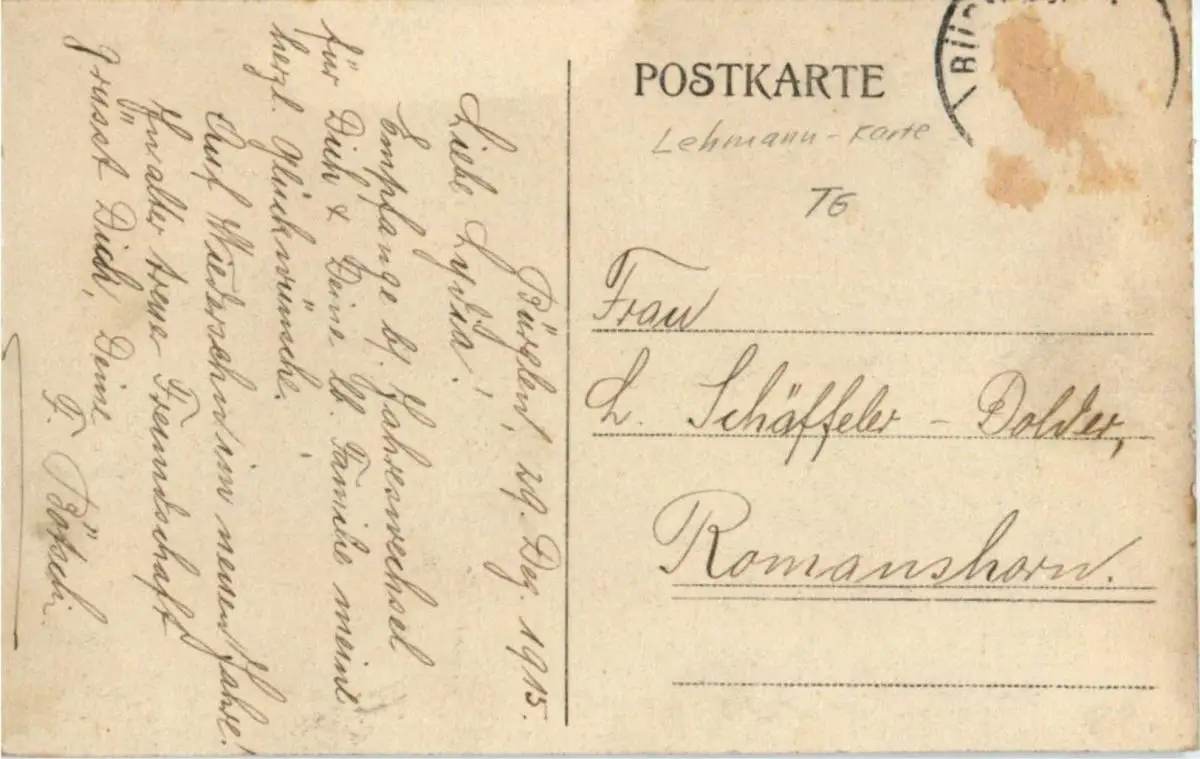 POSTKARTE
Lehmann-Karte
TG
Frau
L. Schäffeler - Dolder,
Romanshorn.
Bürglen, 29. Dez. 1915.
Liebe Lydia!
Empfange bl. Jahreswechsel
für Dich & Deine lb. Familie meine
herzl. Glückwünsche.
Auf Wiedersehn im neuen Jahre!
In alter treuer Freundschaft
grüsst Dich, Deine
F. Bötschi.